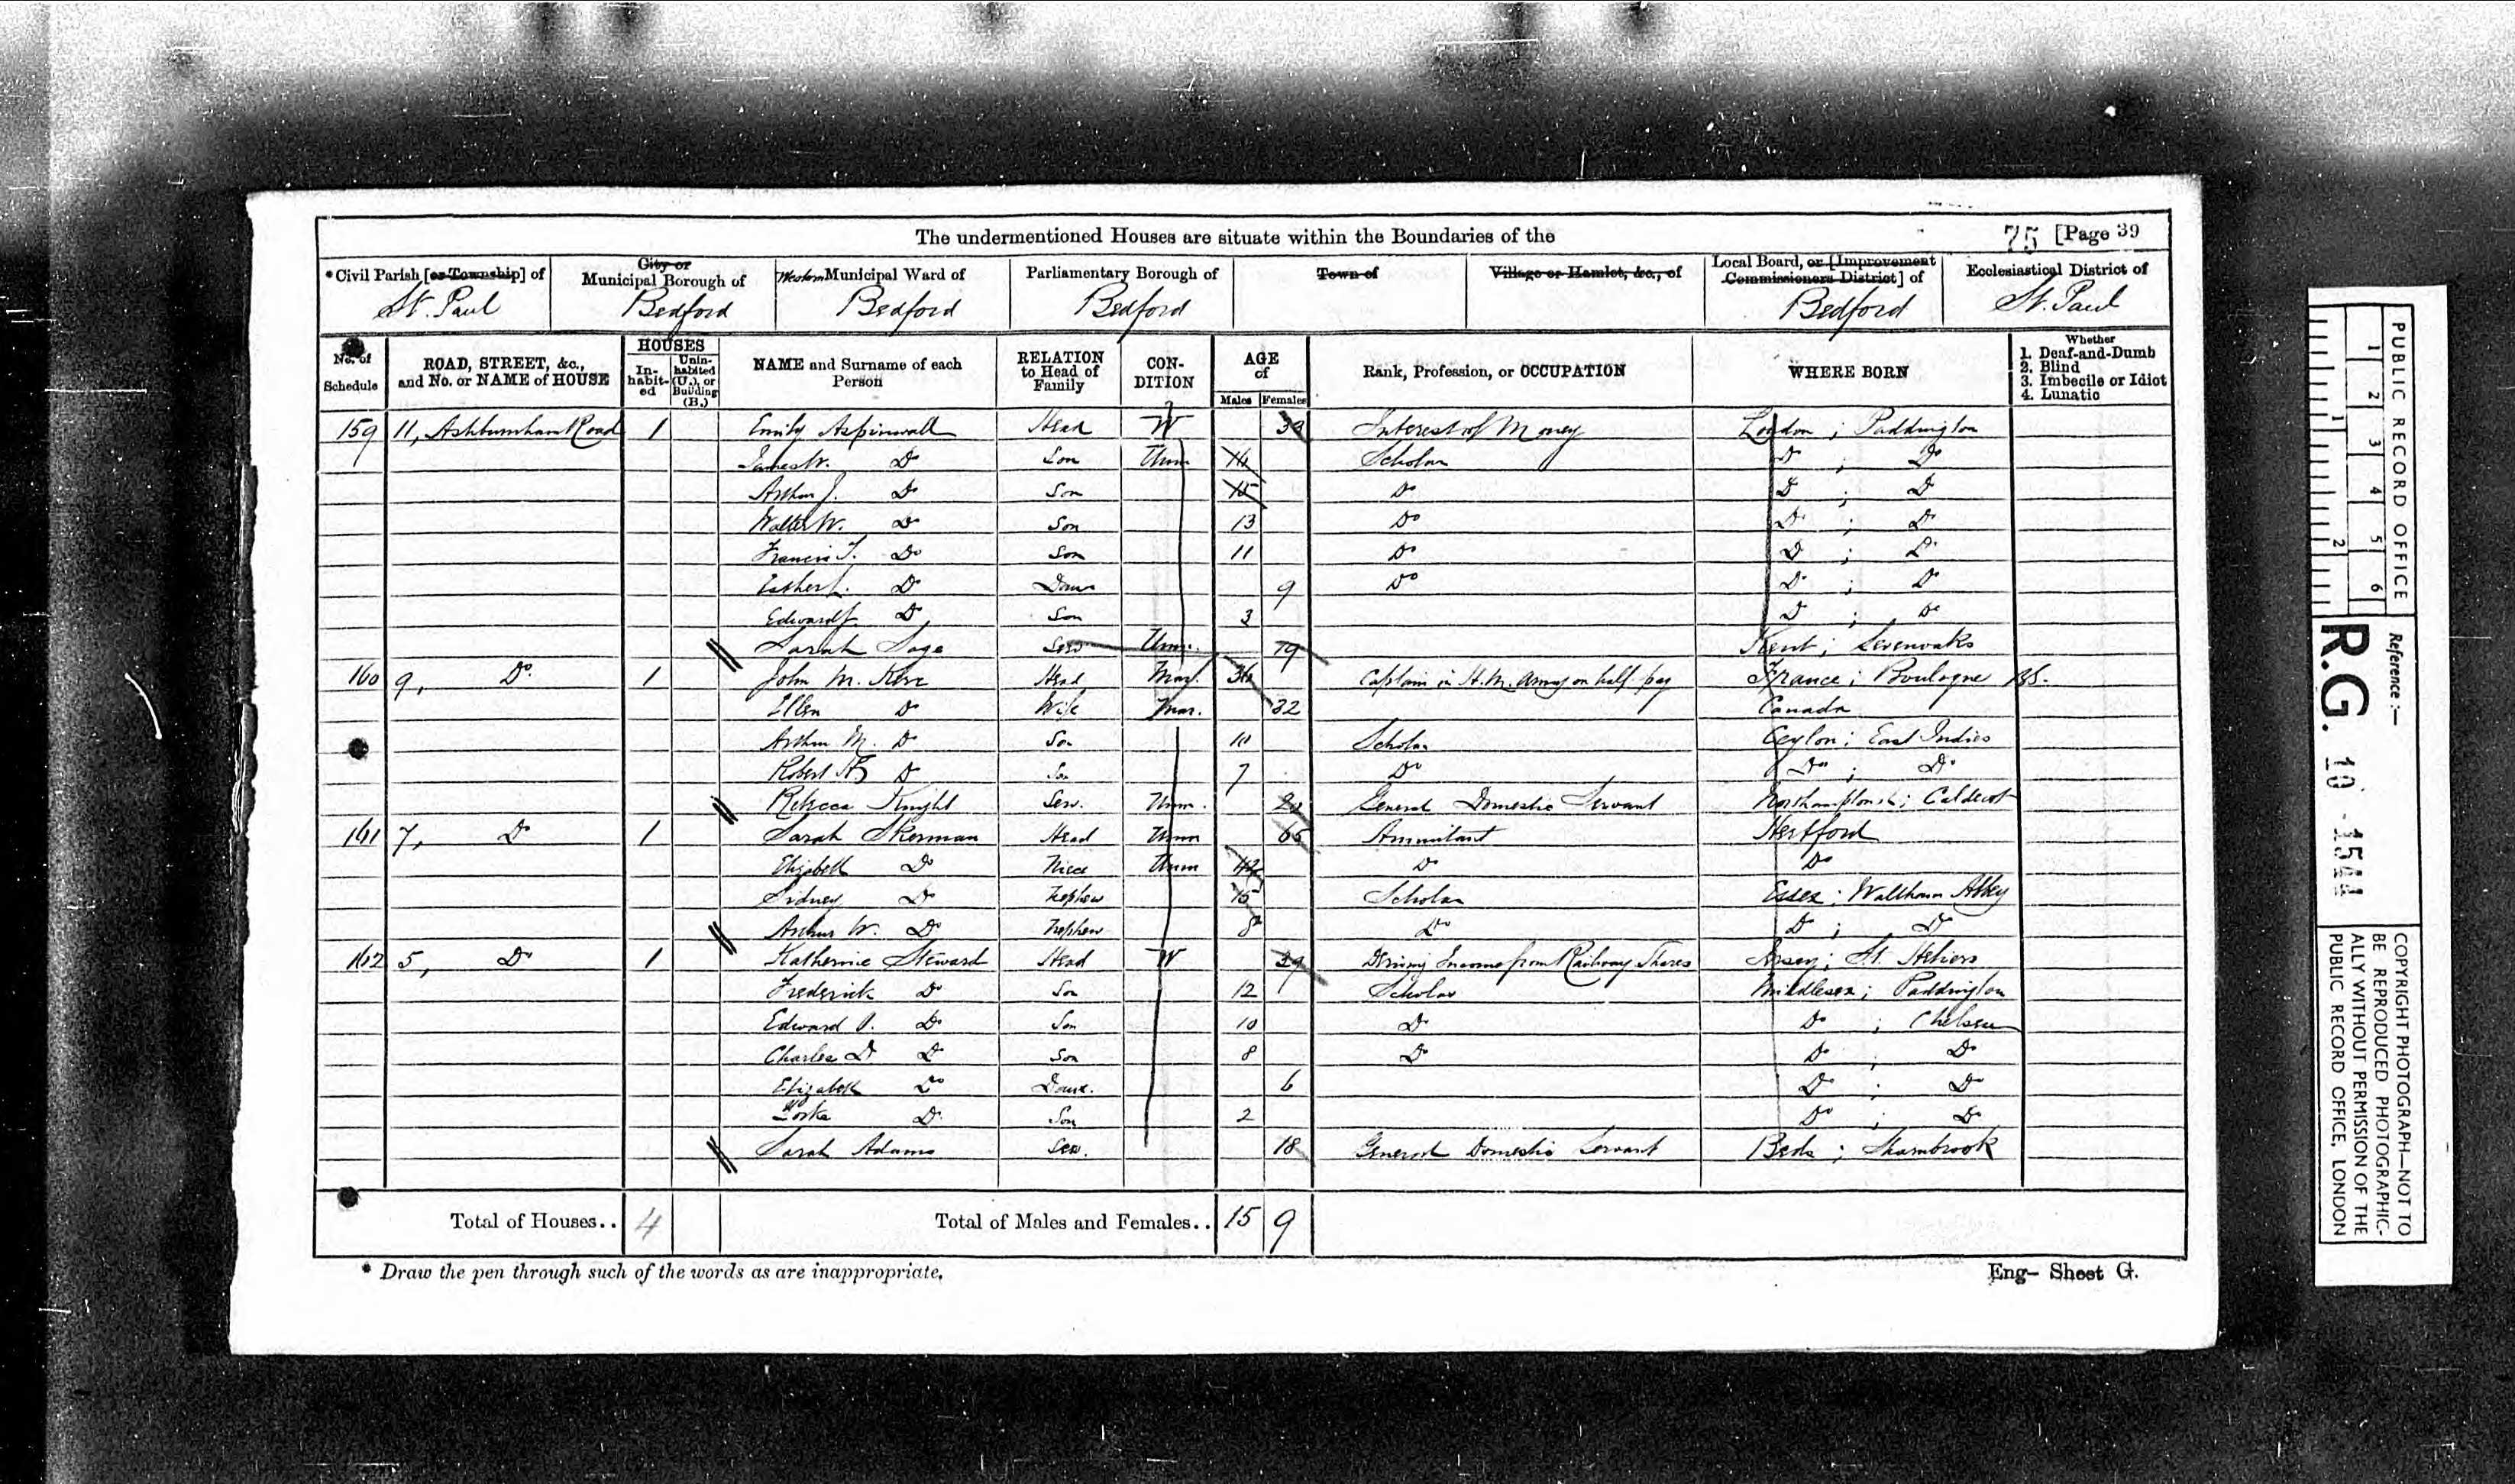 The undermentioned Houses are situate within the Boundaries of the
75 [Page 39
*Civil Parish [or Township] of St. Paul
City or Municipal Borough of Bedford
Western Municipal Ward of Bedford
Parliamentary Borough of Bedford
Town of
Village or Hamlet, &c., of
Local Board, or [Improvement Commissioners District] of Bedford
Ecclesiastical District of St. Paul
No. of Schedule
ROAD, STREET, &c., and No. or NAME of HOUSE
HOUSES
In-habit-ed
Unin-habited (U.), or Building (B.)
NAME and Surname of each Person
RELATION to Head of Family
CON-DITION
AGE of
Males Females
Rank, Profession, or OCCUPATION
WHERE BORN
Whether
1. Deaf-and-Dumb
2. Blind
3. Imbecile or Idiot
4. Lunatic
159 11, Ashburnham Road 1 Emily Aspinwall Head W 39 Interest of Money London ; Paddington
James W. Do Son Unm 16 Scholar Do ; Do
Arthur J. Do Son 15 Do Do ; Do
Walter W. Do Son 13 Do Do ; Do
Francis T. Do Son 11 Do Do ; Do
Esther Do Daur 9 Do Do ; Do
Edward Do Son 3 Do ; Do
Sarah Sage Serv Unm. 19 Kent ; Sevenoaks
160 9, Do 1 John M. Head Mar. 36 Captain in H.M. Army on half pay France ; Boulogne BS.
Ellen Do Wife Mar. 32 Canada
Arthur M. Do Son 10 Scholar Ceylon ; East Indies
Robert Do Son 7 Do Do ; Do
Rebecca Knight Serv. Unm. General Domestic Servant Northamptonsh ; Caldecot
161 7, Do 1 Sarah Skerman Head Unm 65 Annuitant Hertford
Elizabeth Do Niece Unm 42 Do Do
Sidney Do Nephew 15 Scholar Essex ; Waltham Abbey
Arthur W. Do Nephew 8 Do Do ; Do
162 5, Do 1 Katherine Steward Head W 39 Deriving Income from Railway Shares Jersey ; St. Heliers
Frederick Do Son 12 Scholar Middlesex ; Paddington
Edward Do Son 10 Do Do ; Chelsea
Charles D Do Son 8 Do Do ; Do
Elizabeth Do Daur. 6 Do ; Do
Yorke Do Son 2 Do ; Do
Sarah Adams Ser. 18 General Domestic Servant Beds ; Sharnbrook
Total of Houses.. 4
Total of Males and Females.. 15 9
* Draw the pen through such of the words as are inappropriate.
Eng- Sheet G.
PUBLIC RECORD OFFICE
1 2 3 4 5 6
1 2
Reference:-
R.G. 10 1544
COPYRIGHT PHOTOGRAPH—NOT TO
BE REPRODUCED PHOTOGRAPHIC-
ALLY WITHOUT PERMISSION OF THE
PUBLIC RECORD OFFICE, LONDON